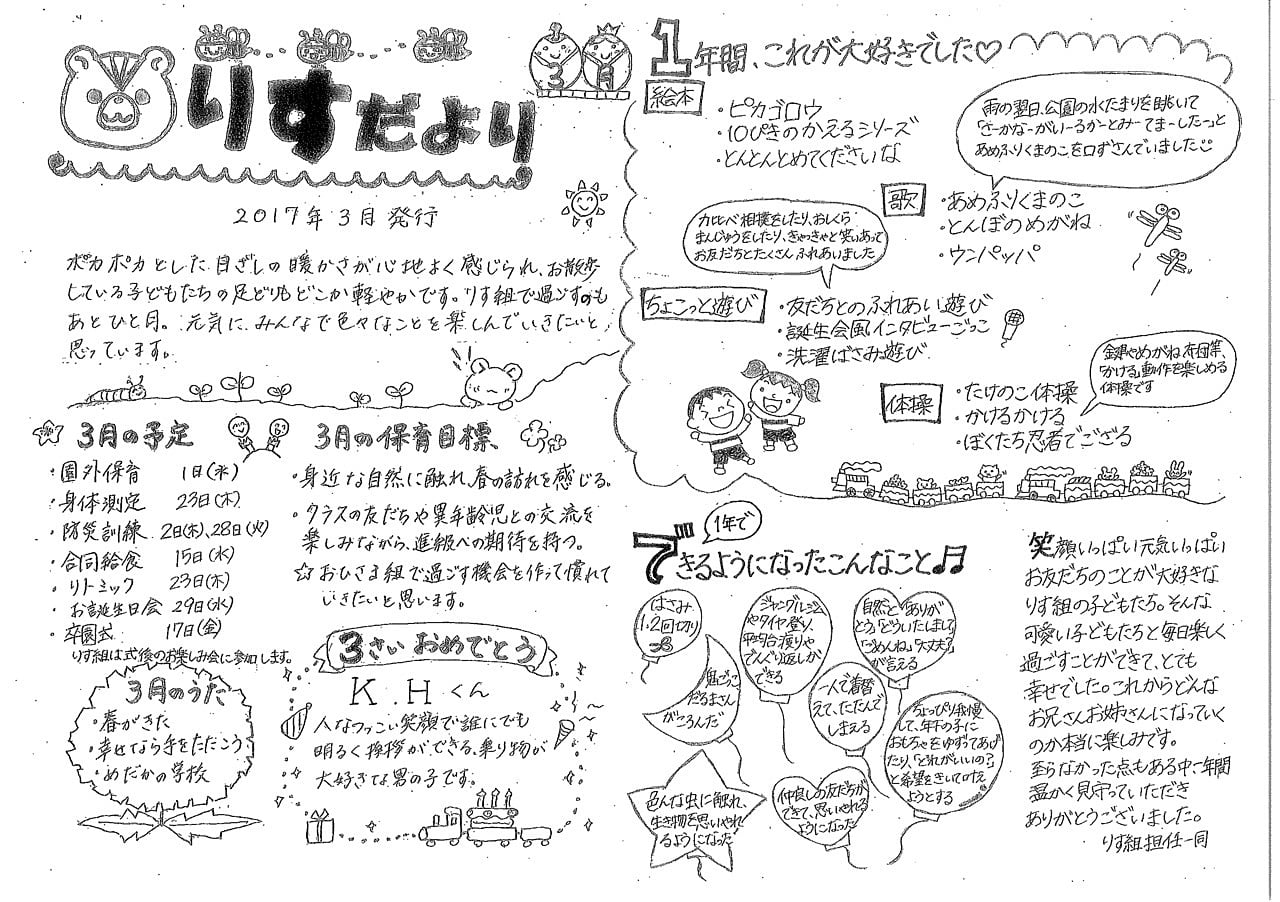 りすだより
3月
2017年3月発行
ポカポカとした日ざしの暖かさが心地よく感じられ、お散歩
している子どもたちの足どりもどこか軽やかです。りす組で過ごすのも
あとひと月。元気に、みんなで色々なことを楽しんでいきたいと
思っています。
3月の予定
・園外保育 1日(水)
・身体測定 23日(木)
・防災訓練 2日(木)、28日(火)
・合同給食 15日(水)
・リトミック 23日(木)
・お誕生日会 29日(水)
・卒園式 17日(金)
りす組は式後のお楽しみ会に参加します。
3月の保育目標
・身近な自然に触れ、春の訪れを感じる。
・クラスの友だちや異年齢児との交流を
楽しみながら、進級への期待を持つ。
☆おひさま組で過ごす機会を作って慣れて
いきたいと思います。
3月のうた
・春がきた
・幸せなら手をたたこう
・めだかの学校
3さいおめでとう
K.Hくん
人なつっこい笑顔で誰にでも
明るく挨拶ができる、乗り物が
大好きな男の子です。
1年間、これが大好きでした♡
絵本
・ピカゴロウ
・10ぴきのかえるシリーズ
・とんとんとめてくださいな
雨の翌日、公園の水たまりを眺いて
「さーかなーがいーるかーとみーてまーしたーっと
あめふりくまのこを口ずさんでいました
歌
・あめふりくまのこ
・とんぼのめがね
・ウンパッパ
力比べ相撲をしたり、おしくら
まんじゅうをしたり、きゃっきゃと笑いあって
お友だちとたくさんふれあいました
ちょこっと遊び
・友だちとのふれあい遊び
・誕生会風インタビューごっこ
・洗濯ばさみ遊び
体操
・たけのこ体操
・かけるかける
・ぼくたち忍者でござる
金銀やめがね、布団等、
「かける」動作を楽しめる
体操です
1年で
できるようになったこんなこと♫
はさみ
1、2回切り
鬼ごっこ
だるまさん
がころんだ
ジャングルジム
やタイヤ登り、
平均台渡りや
でんぐり返しが
できる
自然と「ありが
とう」「どういたしまして」
「ごめんね」「大丈夫?」
が言える
一人で着替
えて、たたんで
しまえる
ちょっぴり我慢
して、年下の子に
おもちゃをゆずってあげ
たり、「どれがいいの?」
と希望をきいて叶え
ようとする
色んな虫に触れ、
生き物を思いやれ
るようになった
仲良しの友だちが
できて、思いやれる
ようになった
笑顔いっぱい元気いっぱい
お友だちのことが大好きな
りす組の子どもたち。そんな
可愛い子どもたちと毎日楽しく
過ごすことができて、とても
幸せでした。これからどんな
お兄さんお姉さんになっていく
のか本当に楽しみです。
至らなかった点もある中一年間
温かく見守っていただき
ありがとうございました。
りす組担任一同